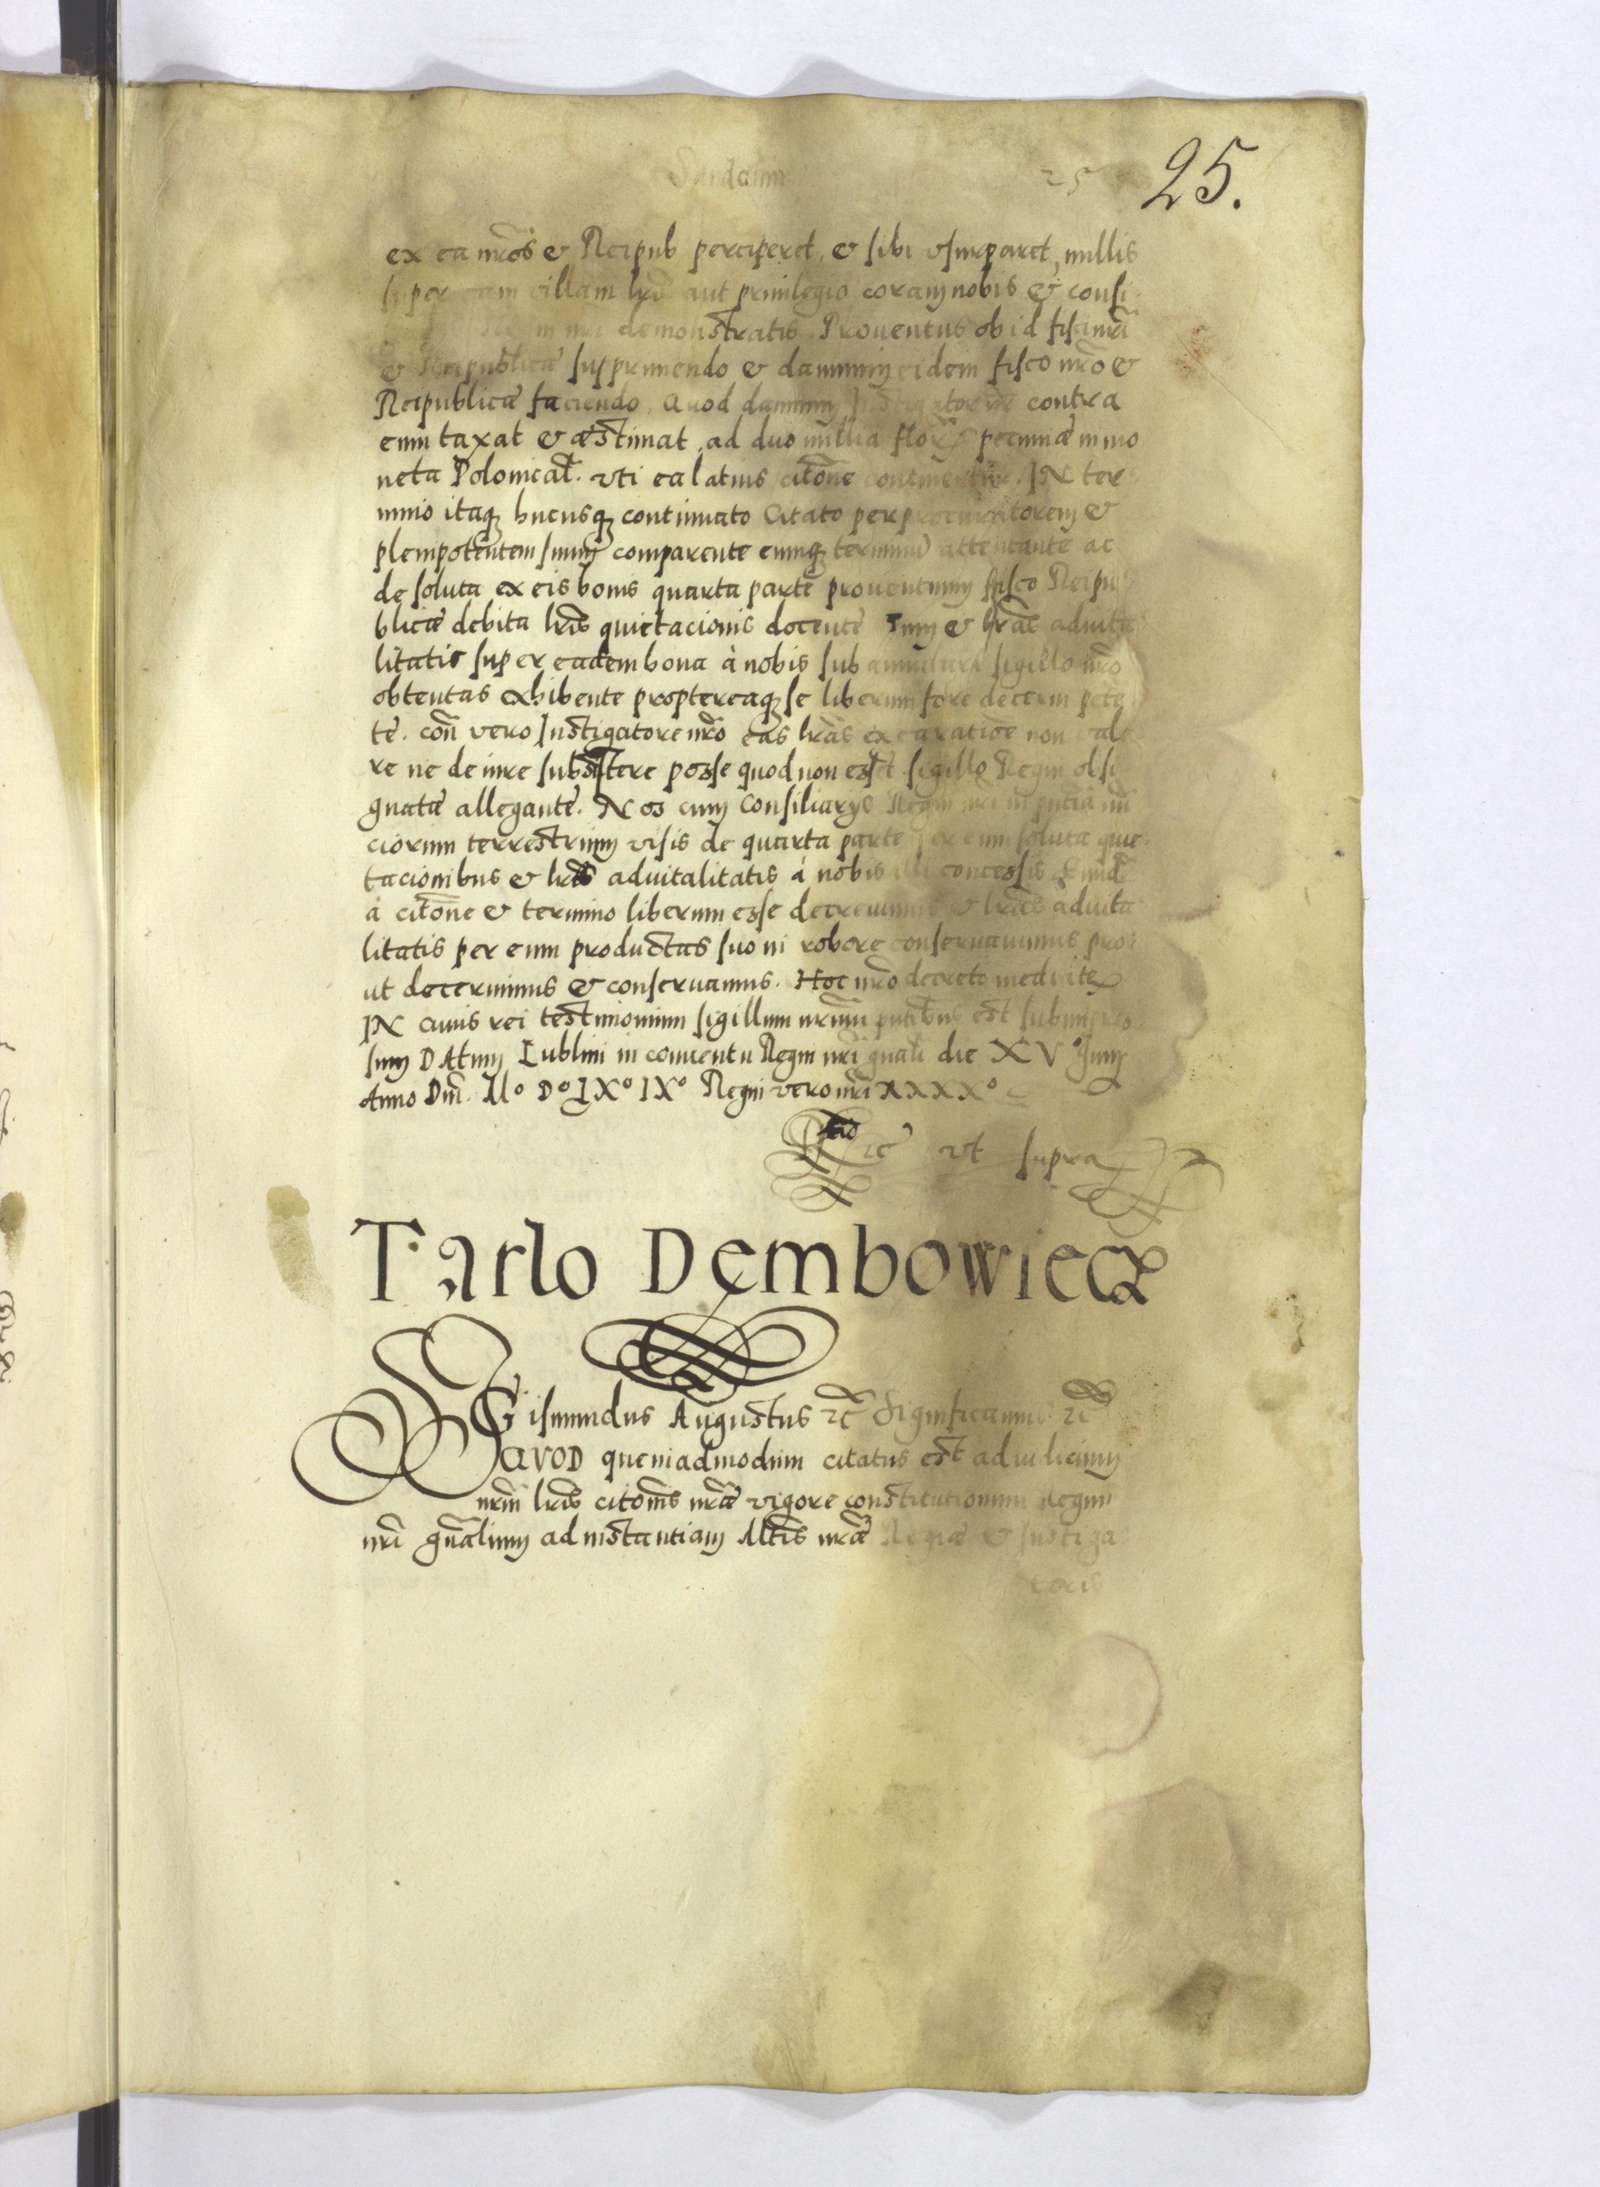 25
25.
ex ea nr̃os & Reipub perciperet, & sibi vsurparet, nullis
super eam villam lr̃is aut priuilegio coram nobis & consi
demonstratis. Prouentus ob id fisci nr̃i
& Reipublicæ supprimendo & damnum eidem fisco nr̃o &
Reipublicæ faciendo, Quod damnum Instigator contra
eum taxat & æstimat, ad duo millia flor pecuniæ in mo
neta Polonicał. vti ea latius citõne continentur. IN ter
mino itaq hucusq continuato Citato per procuratorem &
plenipotẽntem suum comparente eumq terminũ attentante ac
de soluta ex eis bonis quarta parte prouentuum fisco Reipu
blicæ debita lr̃is quietacionis docente Tum & lr̃as aduita
litatis super eadem bona à nobis sub annulari sigillo nr̃o
obtentas exhibente proptereaq se liberum fore decerni pete
te. con̄ vero Instigatore nr̃o eas lr̃as ex ea ratione non vale
re ne de iure subsistere posse quod non esset sigillo Regni obsi
gnatæ allegante. Nos cum Consiliarijs Regni nr̃i
ciorum terrestrium visis de quarta parte per eum soluta quie
tacionibus & lr̃is aduitalitatis à nobis illi concessis Eund
à citõne & termino liberum esse decreuimus & lr̃as aduita
litatis per eum productas suo in robore conseruauimus pro
ut decernimus & conseruamus. Hoc nr̃o decreto mediãte
IN cuius rei testimonium sigillum nr̃um pñtibus est subimpres
sum DAtum Lublini in conuentu Regni nr̃i gñali die XVº Junij
Anno Dñi. Mº Dº LXº IXº Regni vero nr̃i XXXXº
Rlc̃ vt supra
Tarlo Dembowieczˀ
SIGismundus Augustus ꝛc̃ Significamus ꝛc̃
QVOD quemadmodum citatus est ad iudicium
nr̃m lr̃is citõnis nr̃æ vigore constitutionum Regni
nr̃i gñalium ad instantiam Altis nr̃æ Regiæ & Instiga
toris